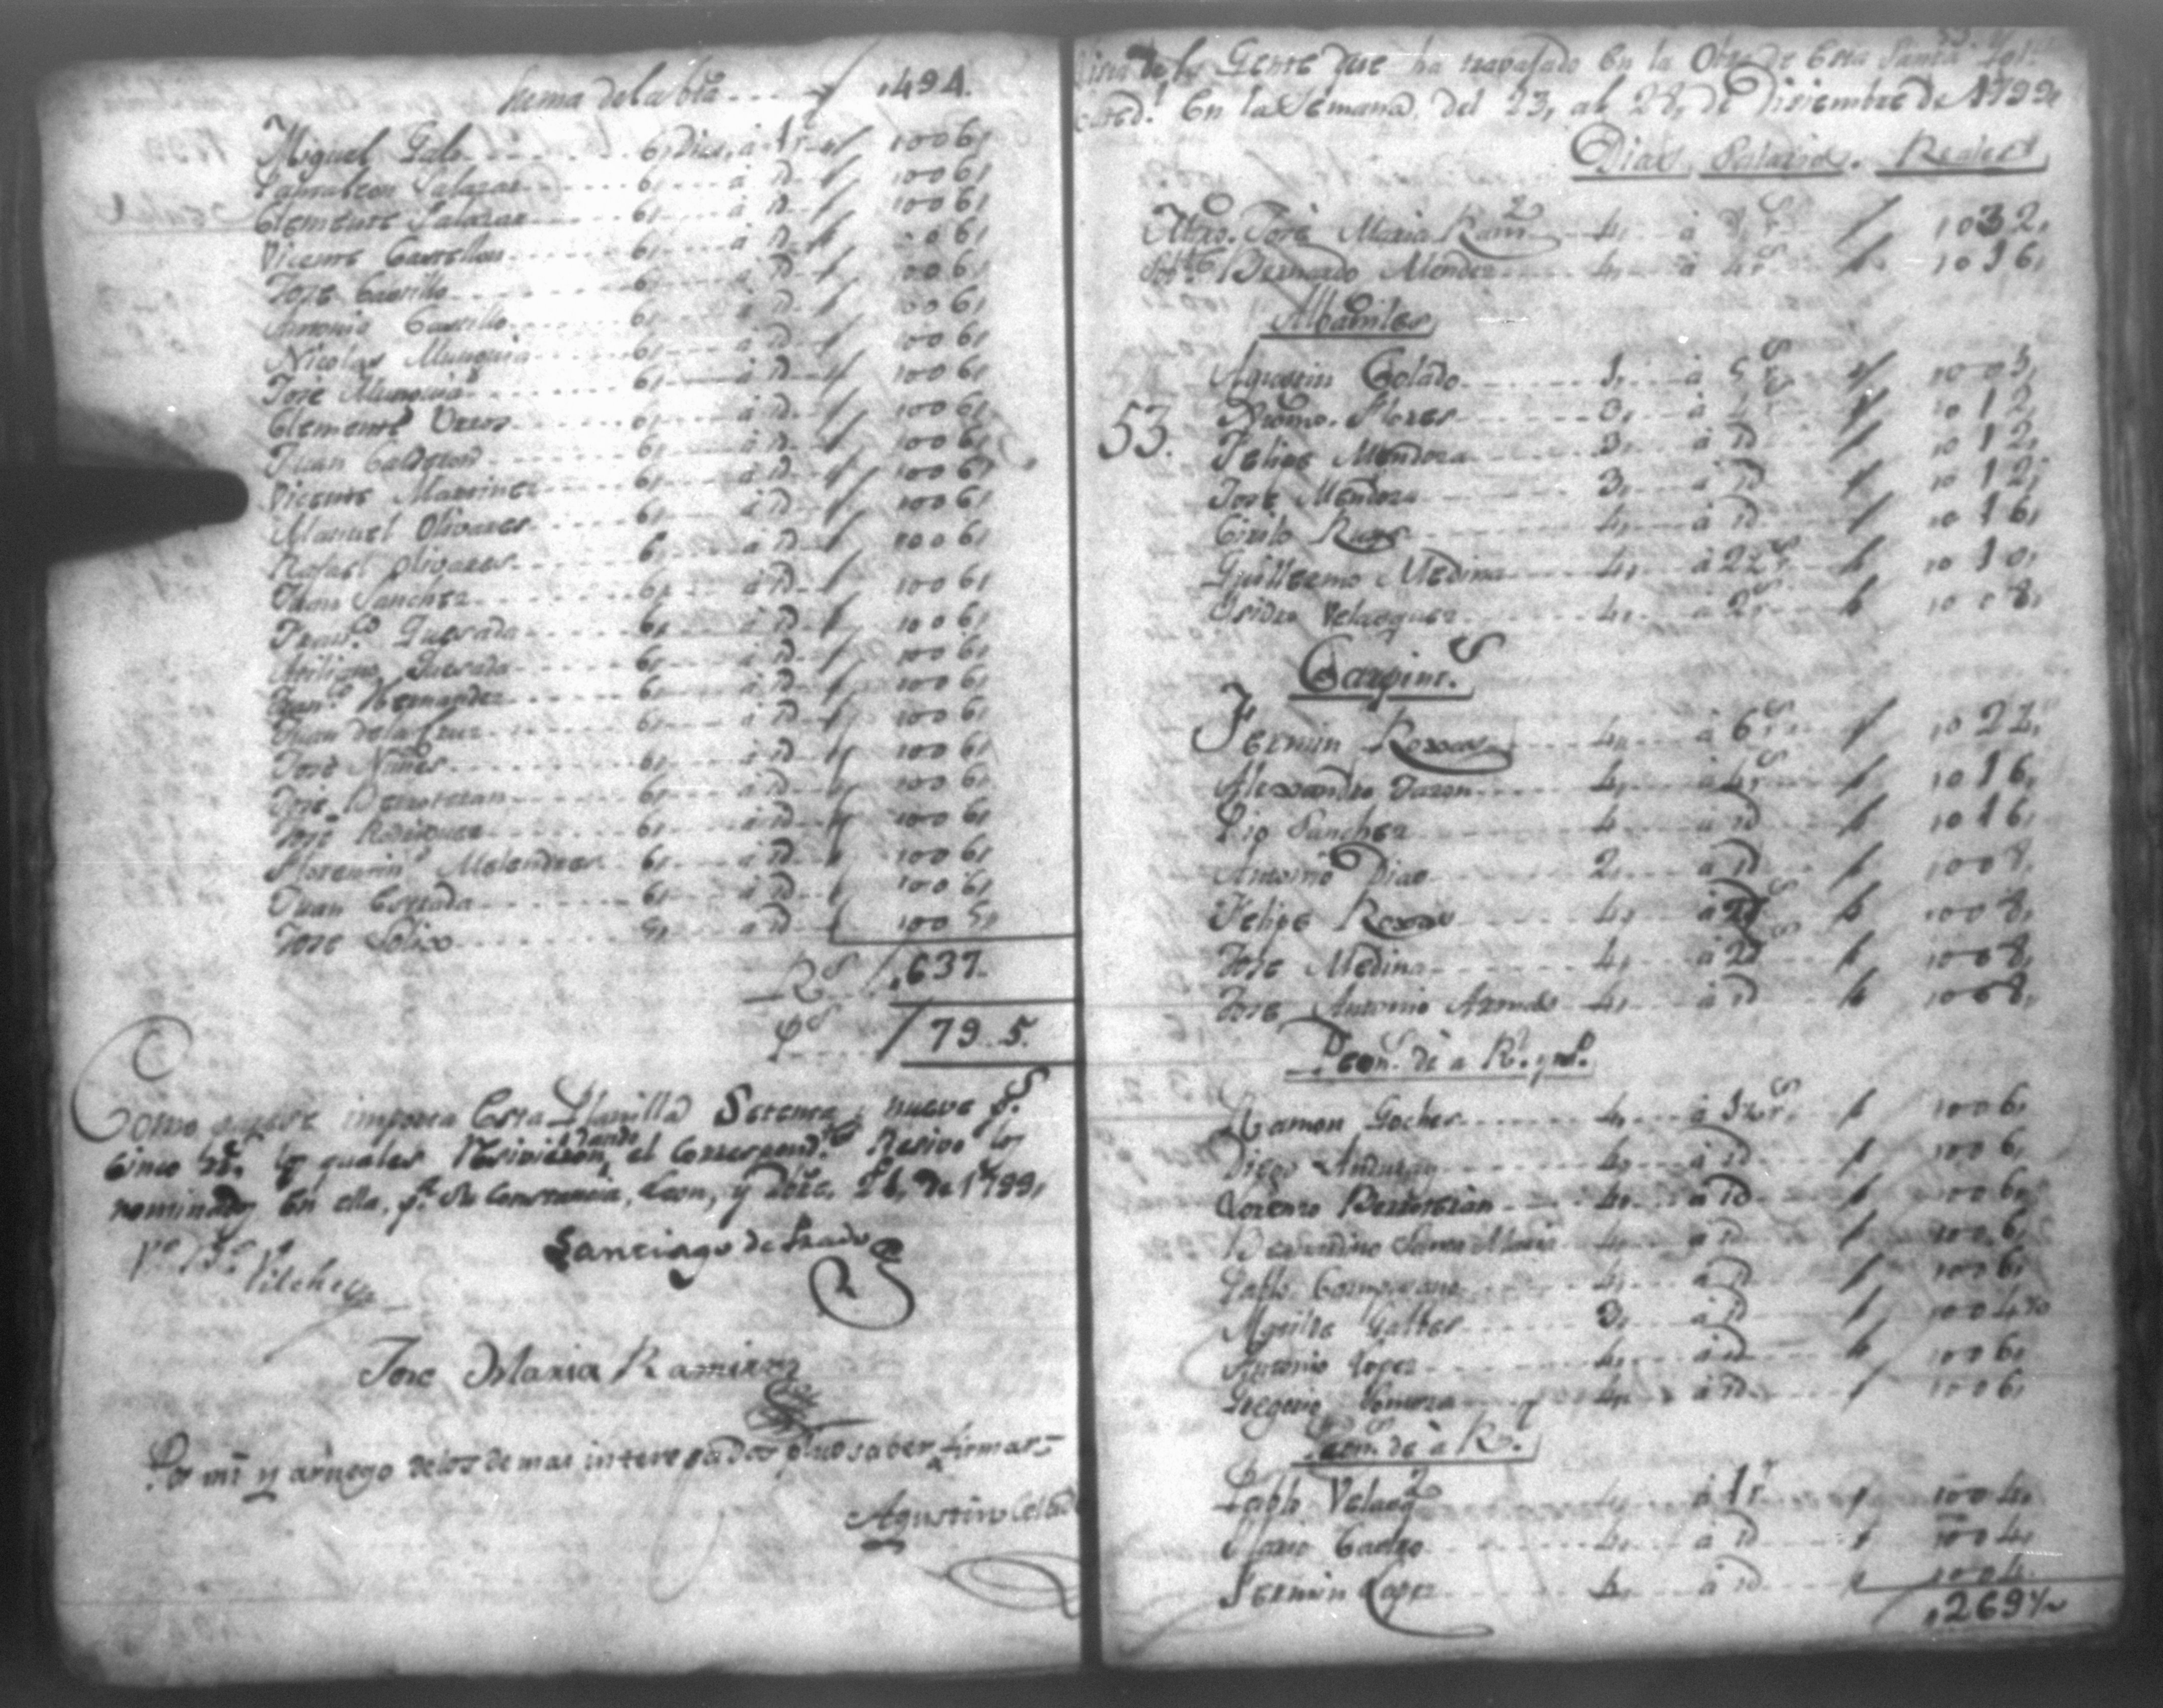 Suma de la bta ,494.
Miguel Galo 6, Dias, a 1 r 006,
Pantaleon Salazar 6, a id 006,
Clemente Salazar 6, a id 006,
Vicente Castellon 6, a id 006,
Jose Castillo 6, a id 006,
Antonio Castillo 6, a id 006,
Nicolas Munguia 6, a id 006,
Jose Munguia 6, a id 006,
Clemente 6, a id 006,
Juan Calderon 6, a id 006,
Vicente Martinez 6, a id 006,
Manuel Olivares 6, a id 006,
Rafael Olivares 6, a id 006,
Juan Sanchez 6, a id 006,
Fran.co Quesada 6, a id 006,
Quesada 6, a id 006,
Fran.co Hernandez 6, a id 006,
Juan de la Cruz 6, a id 006,
Jose Nuñes 6, a id 006,
Jose Berroteran 6, a id 006,
Jose Rodriguez 6, a id 006,
Florentino Melendres 6, a id 006,
Juan Estrada 6, a id 006,
Jose Solis 5, a id 005,
R.s ,637.
P.s 79..5.
Como parese importa Esta Planilla Setenta y nueve p.s
cinco rr.s los quales Resivieron, dando el Correspond.te Resivo los
nominados En ella, p.a su Constancia, Leon, y Dbre, de 1799,
V.o B.o
Vilches
Santiago de Prado
Jose Maria Ramirez
Por mi y arruego de los demas interesados p.r no saber firmar
Agustin Colado
Lista de la Gente que ha travajado En la Obra de Esta Santa Igl.a
Cated.l En la Semana, del 23, al 28, de Diziembre de 1799,
Dias, Salarios. Reales,
Mtro. Jose Maria Ram.z 4, a 8 r.s 032,
Bernardo Mendez 4, a 4 r.s 016,
Albañiles
Agustin Colado 1, a 5 r.s 005,
53.
Flores 3, a 4 r.s 012,
Felipe Mendoza 3, a id 012,
Jose Mendoza 3, a id 012,
Cirilo Ruiz 4, a id 016,
Guillermo Medina 4, a 2½ r.s 010,
Isidro Velasquez 4, a 2 r.s 008,
Carpint.s
Fermin Roxas 4, a 6 r.s 024,
Alexandro 4, a 4 r.s 016,
Pio Sanchez 4, a id 016,
Antonio Dias 2, a id 008,
Felipe Roxas 4, a 2 r.s 008,
Jose Medina 4, a 2 r.s 008,
Jose Antonio 4, a id 008,
Peon.s de a R.l y m.o
Ramon Goches 4, a 1½ r.s 006,
Diego Anduray 4, a id 006,
Lorenzo Berroteran 4, a id 006,
Bernardino Santa Maria 4, a id 006,
Pablo 4, a id 006,
3, a id 004½
Antonio Lopez 4, a id 006,
Gregorio 4, a id 006,
Peon.s de a R.l
Pablo Velasq.z 4, a 1 r 004,
Mario Castro 4, a id 004,
Fermin Lopez 4, a id 004,
,269½